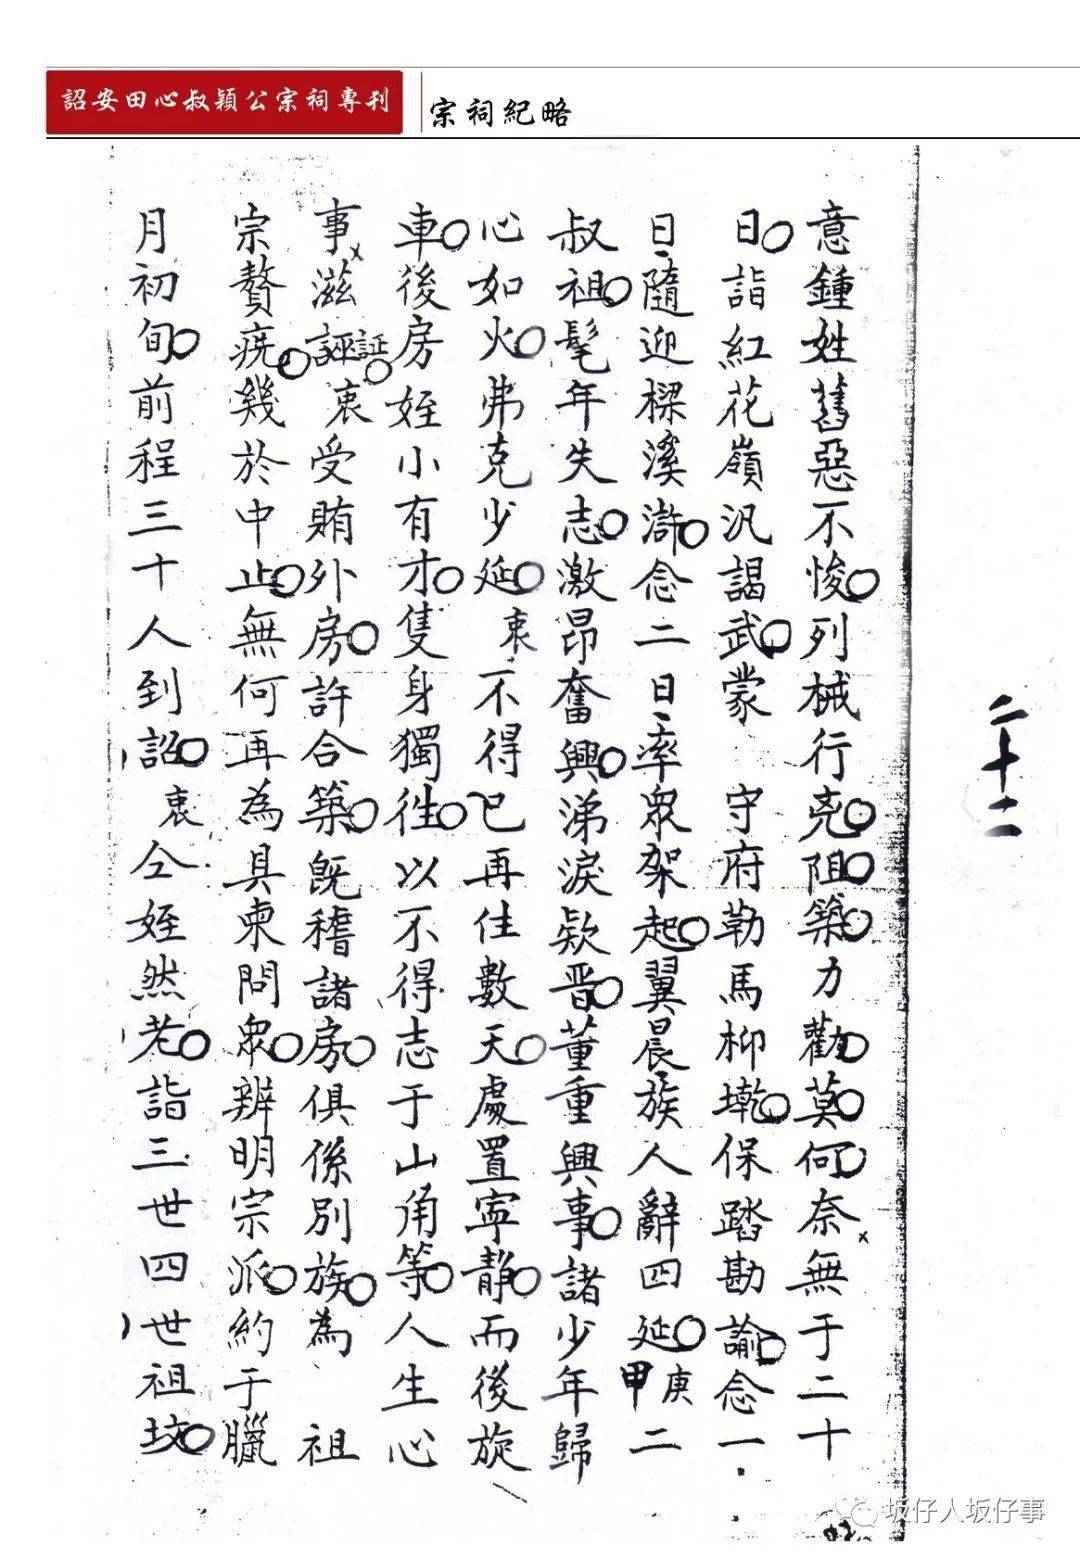 詔安田心叔穎公宗祠專刊
宗祠紀略
二十二
意鍾姓舊惡不悛列械行兇阻築力勸莫何奈無于二十
日詣紅花嶺汛謁武蒙 守府勒馬柳墘保踏勘諭念一
日隨迎樑溪滸念二日率眾架起翼晨族人辭四延甲庚二
叔祖髦年失志激昂奮興涕淚欵晋董重興事諸少年歸
心如火弗克少延衷不得已再住數天處置寧靜而後旋
車後房姪小有才隻身獨徃以不得志于山角等人生心
事滋誣証衷受賄外房許合築既稽諸房俱係別族為 祖
宗贅疣幾於中止無何再為具柬問眾辨明宗派約于臘
月初旬前程三十人到詔衷仝姪然老詣三世四世祖坟
坂仔人坂仔事